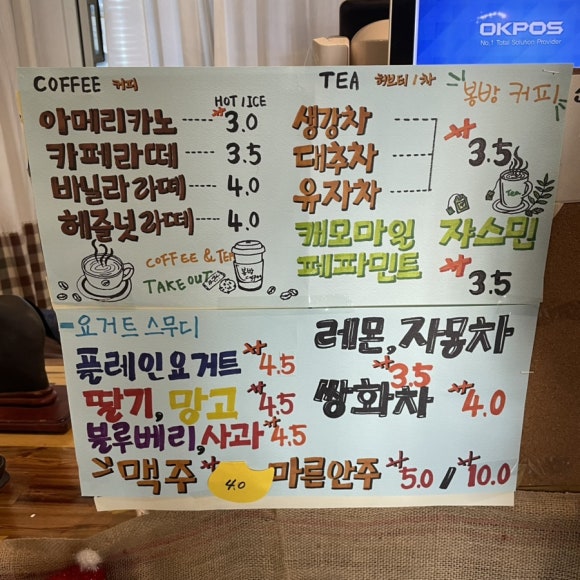 OKPOS
No.1 Total Solution Provider
COFFEE 커피
HOT / ICE
아메리카노 ---- 3.0
카페라떼 ---- 3.5
바닐라라떼 ---- 4.0
헤즐넛라떼 ---- 4.0
COFFEE & TEA
TAKE OUT
TEA 허브티 / 차
봉방 커피
생강차
대추차 3.5
유자차
TEA
캐모마일 쟈스민
페파민트 3.5
-요거트 스무디
플레인요거트 4.5
딸기, 망고 4.5
블루베리, 사과 4.5
레몬, 자몽차
3.5
쌍화차 4.0
맥주 4.0 마른안주 5.0 / 10.0